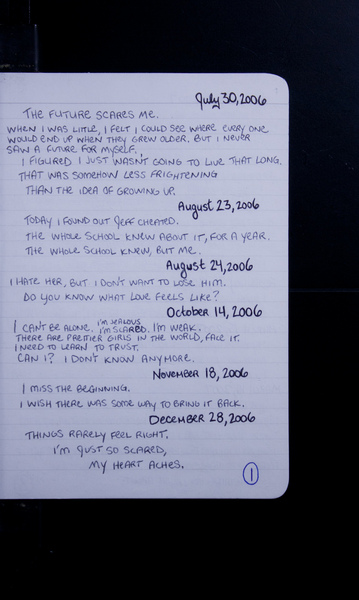 July 30, 2006
THE FUTURE SCARES ME.
WHEN I WAS LITTLE, I FELT I COULD SEE WHERE EVERY ONE
WOULD END UP WHEN THEY GREW OLDER. BUT I NEVER
SAW A FUTURE FOR MYSELF.
I FIGURED I JUST WASN'T GOING TO LIVE THAT LONG.
THAT WAS SOMEHOW LESS FRIGHTENING
THAN THE IDEA OF GROWING UP.
August 23, 2006
TODAY I FOUND OUT JEFF CHEATED.
THE WHOLE SCHOOL KNEW ABOUT IT, FOR A YEAR.
THE WHOLE SCHOOL KNEW, BUT ME.
August 24, 2006
I HATE HER, BUT I DON'T WANT TO LOSE HIM.
DO YOU KNOW WHAT LOVE FEELS LIKE?
October 14, 2006
I'M JEALOUS
I CAN'T BE ALONE. I'M SCARED. I'M WEAK.
THERE ARE PRETTIER GIRLS IN THE WORLD, FACE IT.
I NEED TO LEARN TO TRUST.
CAN I? I DON'T KNOW ANYMORE.
November 18, 2006
I MISS THE BEGINNING.
I WISH THERE WAS SOME WAY TO BRING IT BACK.
December 28, 2006
THINGS RARELY FEEL RIGHT.
I'M JUST SO SCARED,
MY HEART ACHES.
1